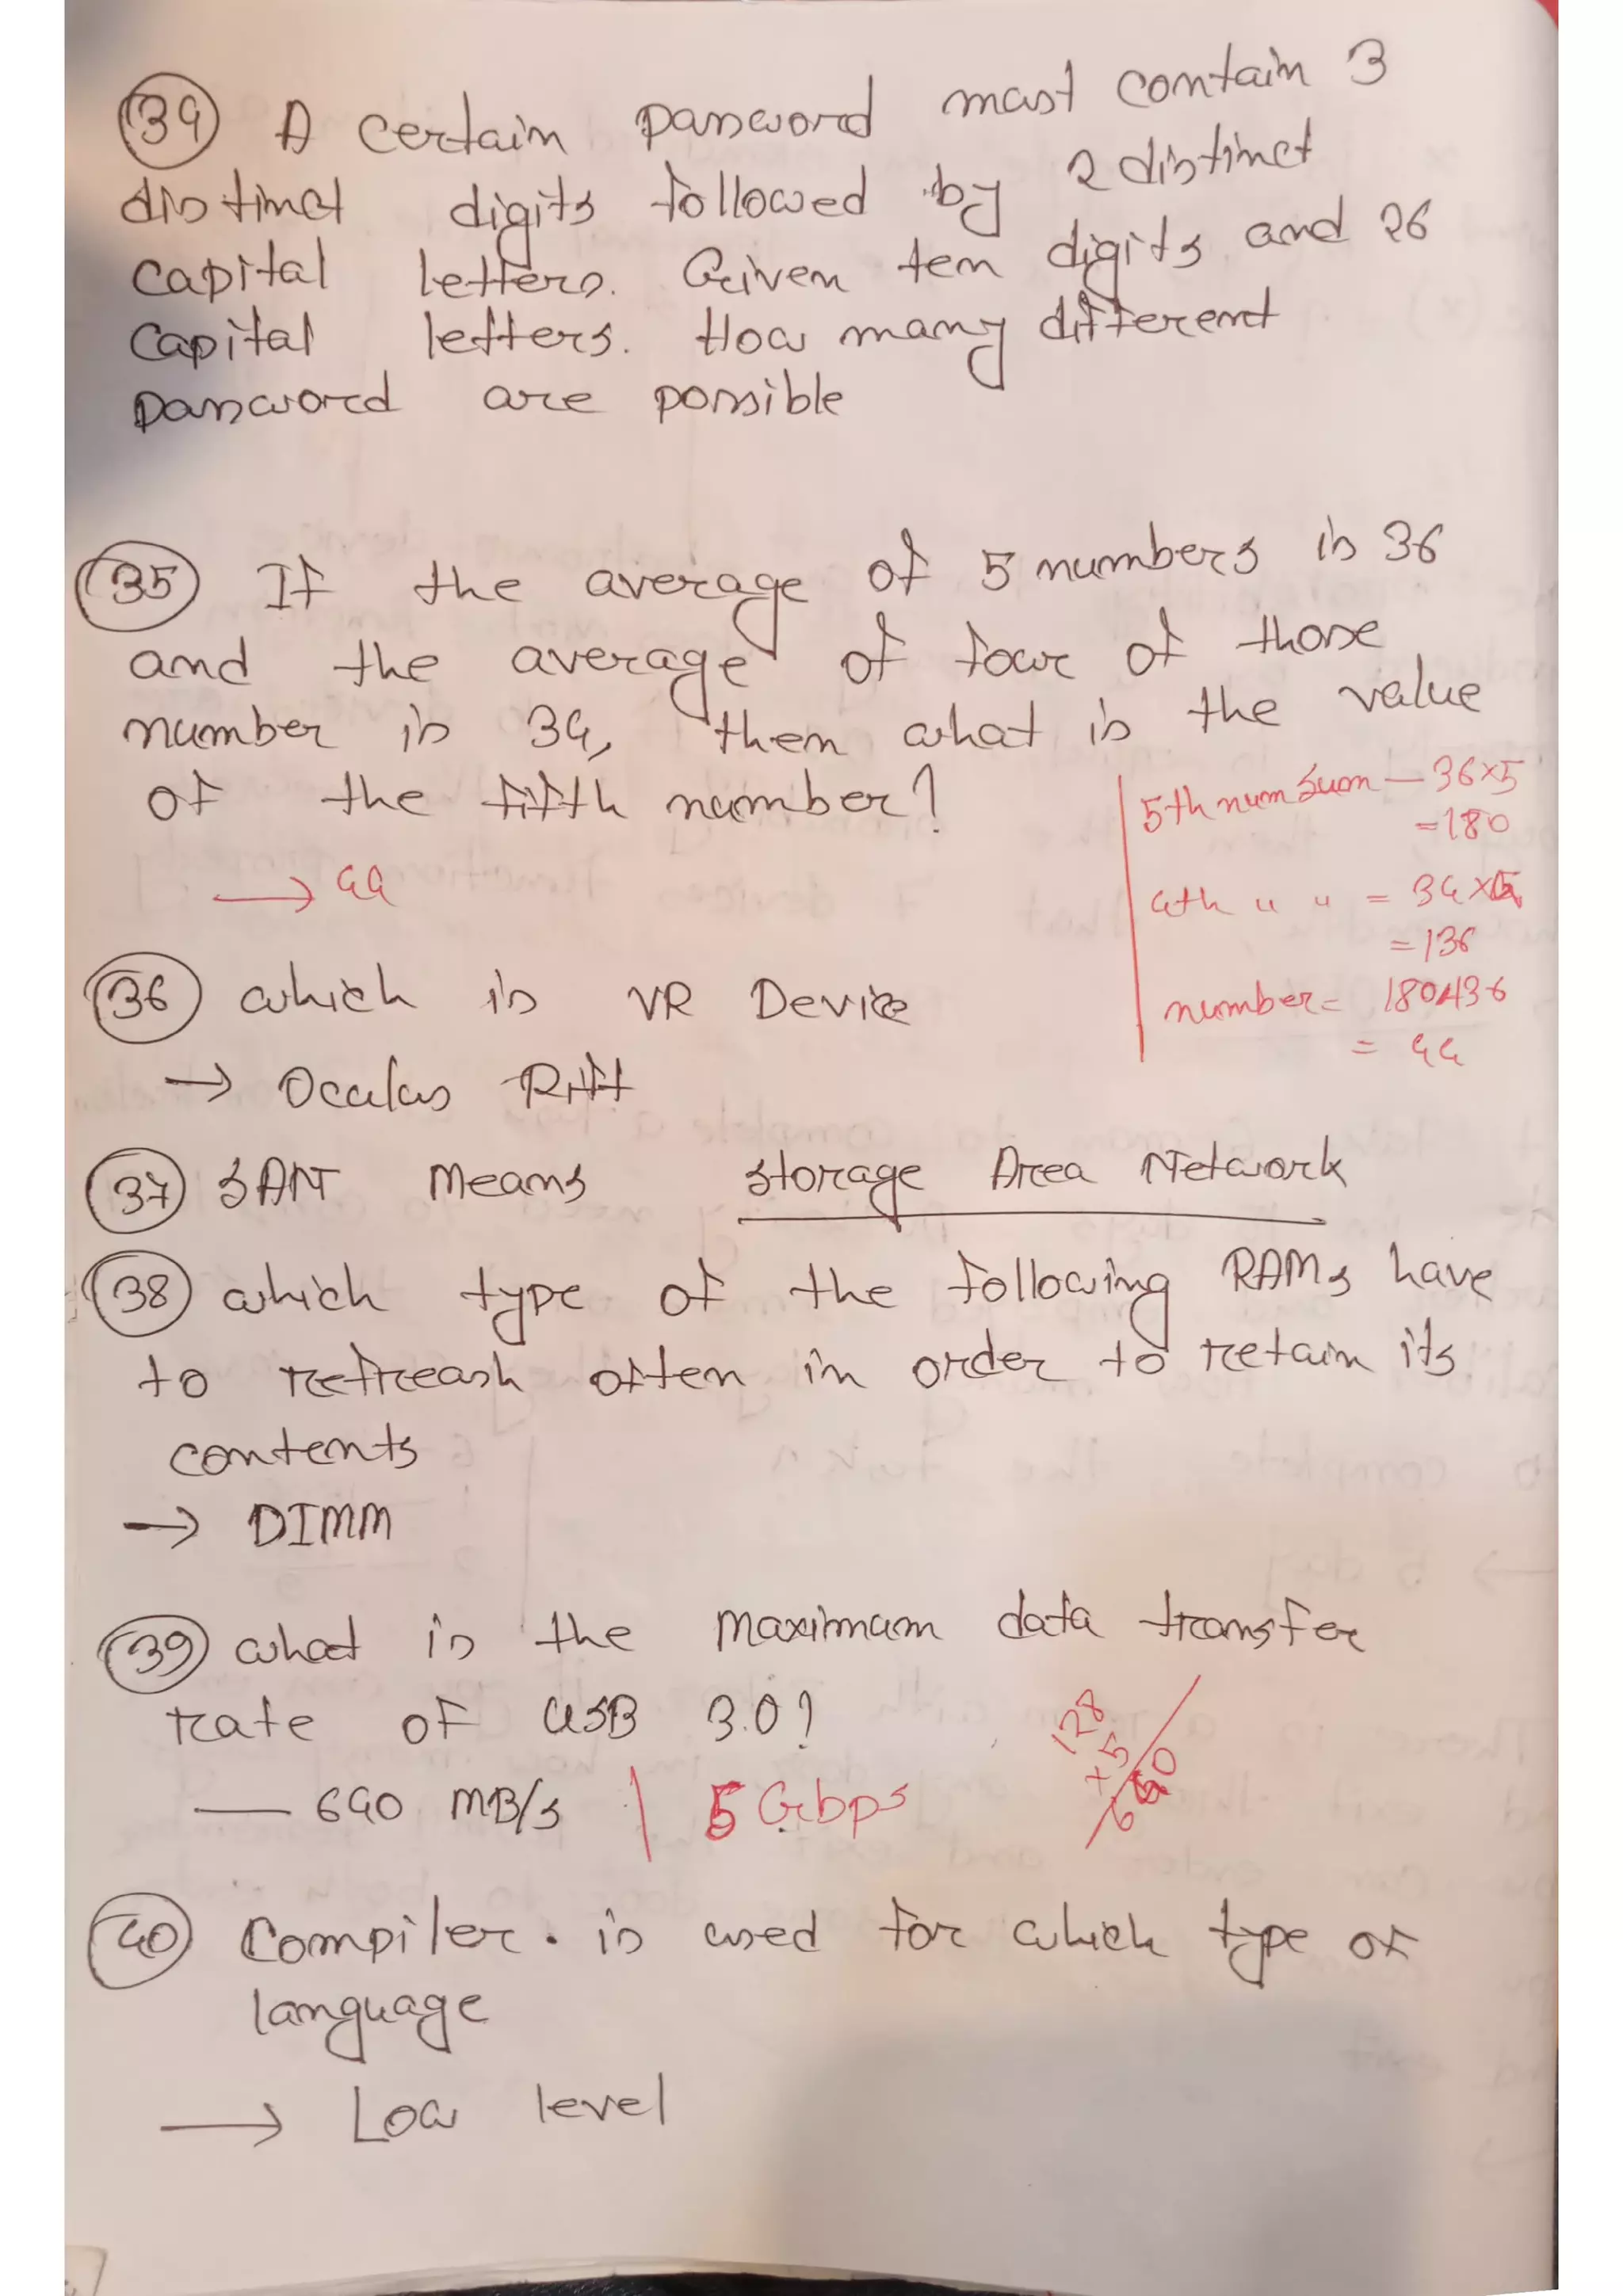 34 A certain password must contain 3
distinct digits followed by 2 distinct
capital letters. Given ten digits and 26
capital letters. How many different
password are possible
35 If the average of 5 numbers is 36
and the average of four of those
number is 34, then what is the value
of the fifth number?
→ 44
5th num Sum — 36×5
=180
4th " " = 34×4
=136
number= 180-136
= 44
36 which is VR Device
→ Oculus Rift
37 SAN Means Storage Area Network
38 which type of the following RAMs have
to refreash often in order to retain its
contents
→ DIMM
39 what is the maximum data transfer
rate of USB 3.0?
— 640 MB/s | 5 Gbps
128
×5
640
40 Compiler. is used for which type of
language
→ Low level